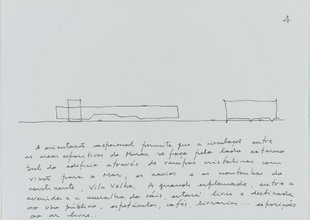 4
A orientação excepcional permite que a circulação entre
as áreas expositivas do Museu se faça pelo lado externo
Sul do edifício através de rampas cristalinas com
visões para o mar, os navios e as montanhas do
continente, Vila Velha. A grande esplanada, entre a
avenida e a muralha do cais estará livre e destinada
ao uso público, espetáculos, cafés, livrarias... exposições
ao ar livre.